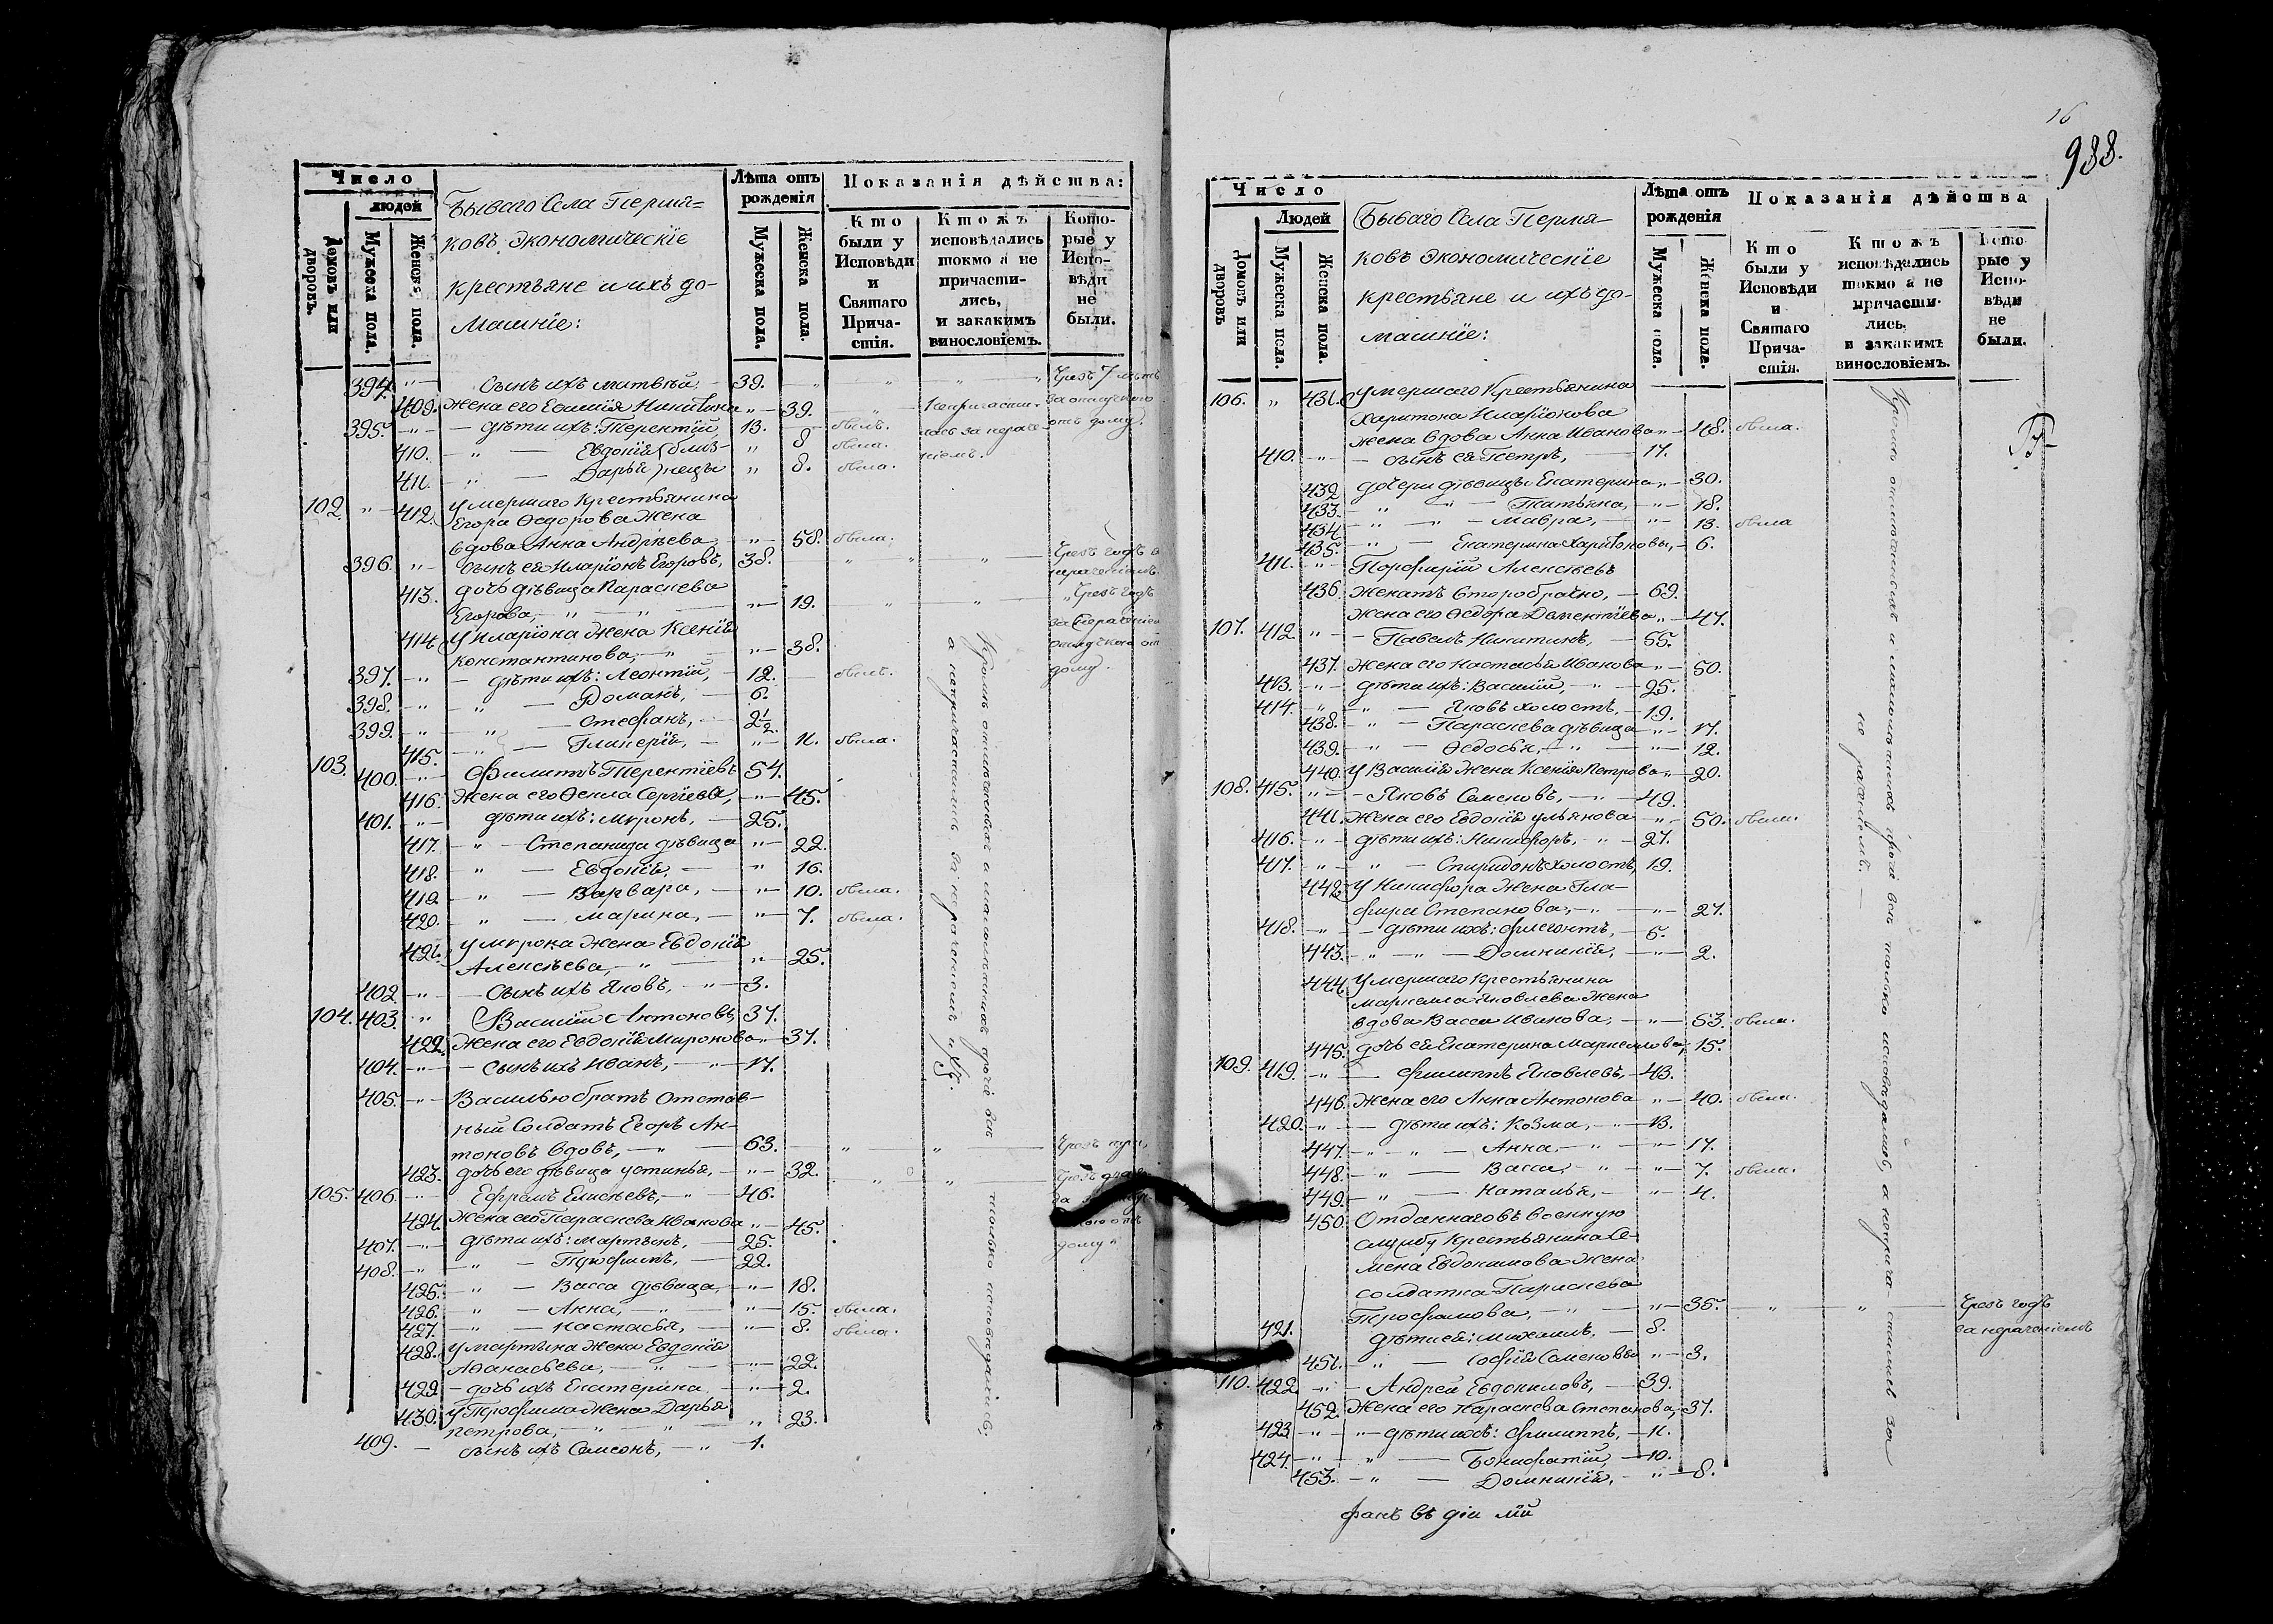 Число
людей
Домовъ или дворовъ.
Мужеска пола.
Женска пола.
Бываго Села Пермя-
ковъ экономическіе
крестьяне и ихъ до-
машніе:
Лѣта отъ рожденія
Мужеска пола.
Женска пола.
Показанія дѣйства:
Кто были у Исповѣди и Святаго Причастія.
Ктожъ исповѣдались токмо а не причастились, и закакимъ винословіемъ.
Которые у Исповѣди не были.
394. " — Сынъ ихъ Матвѣй, — 39. Чрезъ 7 лѣтъ
409. Жена его Евѳимія Никитина " — 39. Непричасти- за отлучкою
395. " — дѣти ихъ: Терентій 13. былъ. лась за нераче- отъ дому.
410. " — Евдокія (близ- " 8 была. ніемъ.
411. " — Дарья) нецы " 8. была.
102. " 412. Умершаго Крестьянина
Егора Ѳедорова Жена
вдова Анна Андрѣева, " — 58. была.
396. " Сынъ ея Иларіонъ Егоровъ, 38. Чрезъ годъ за
нераченіемъ.
413. дочь дѣвица Параскева
Егорова, " — " — 19. Чрезъ годъ
414. У Иларіона Жена Ксенія за нераченіемъ
Константинова, — " " — 38. отлучкою отъ
397. " — дѣти ихъ: Леонтій, — 12. былъ. дому.
398. " — " — Романъ, — 6.
399. " — " — Стефанъ, — 2½
415. " — Гликерія, — " — 11. была.
103. 400. " — Филиппъ Терентіевъ 54.
416. Жена его Ѳекла Сергіева, — " — 45.
401. " — дѣти ихъ: Миронъ, — 25.
417. — " — Степанида дѣвица " — 22.
418. — " — Евдокія, — " 16.
419. — " — Варвара, — " — 10. была.
420. — " — Марина, — " — 7. была.
421. У Мирона Жена Евдокія
Алексѣева, — " — " — 25.
402. " — Сынъ ихъ Яковъ, — " — 3.
104. 403. " Василій Антоновъ, 37.
422. Жена его Евдокія Миронова " — 37.
404. " — Сынъ ихъ Иванъ, — " — 17.
405. " — Василью братъ Отстав-
ный Солдатъ Егоръ Ан-
тоновъ вдовъ, — " — 63.
423. дочь его дѣвица Устинья, — " — 32.
105. 406. " Ефремъ Елисѣевъ, — " — 46.
424. Жена его Параскева Иванова " — 45.
407. " — дѣти ихъ: Мартынъ, — 25. дому.
408. " — " — Трофимъ, — 22.
425. — " — Васса дѣвица, — " — 18.
426. — " — Анна, — " — 15. была.
427. — " — Настасья, — " — 8. была.
428. У Мартына Жена Евдокія
Аѳанасьева, — " — 22.
429. — дочь ихъ Екатерина " — 2.
430. У Трофима Жена Дарья
Петрова, — " — " 23.
409. — сынъ ихъ Самсонъ, — " — 1.
Кромѣ отмѣченныхъ и малолѣтнихъ прочіе всѣ только исповѣдались,
а непричастились за нераченіемъ
16
988.
Число
Людей
Домовъ или дворовъ
Мужеска пола.
Женска пола.
Бываго Села Пермя-
ковъ экономическіе
крестьяне и ихъ до-
машніе:
Лѣта отъ рожденія
Мужеска пола.
Женска пола.
Показанія дѣйства
Кто были у Исповѣди и Святаго Причастія.
Ктожъ исповѣдались токмо а не причастились, и закакимъ винословіемъ.
Которые у Исповѣди не были.
106. " 431. Умершаго Крестьянина
Харитона Иларіонова
жена вдова Анна Иванова " — 48. была.
410. " — сынъ ея Петръ, — 17.
432. дочери дѣвицы Екатерина " — 30.
433. — " — " — Татьяна, — " — 18.
434. — " — " — Мавра, — " — 13. была
435. — " — Екатерина Харитоновы, — 6.
411. " — Порфирій Алексѣевъ
436. женатъ второбрачно, — 69.
Жена его Ѳедора Дементіева " — 47.
107. 412. " — Павелъ Никитинъ, — 55.
437. Жена его Настасья Иванова " — 50.
413. " — дѣти ихъ: Василій, — " — 25.
414. " — " — Яковъ холостъ, — 19.
438. — " — Параскева дѣвица " — 17.
439. — " — Ѳедосья, — " — 12.
440. У Василія Жена Ксенія Петрова " — 20.
108. 415. " — Яковъ Семеновъ, — " — 49.
441. Жена его Евдокія Ульянова " — 50. была.
416. " — дѣти ихъ: Никифоръ, — " — 27.
417. " — " — Спиридонъ холостъ, 19.
442. У Никифора Жена Гла-
фира Степанова, — " — 27.
418. " — дѣти ихъ: Флегонтъ, — 5.
443. — " — " — Домникія, — " — 2.
444. Умершаго Крестьянина
Маркелла Яковлева Жена
вдова Васса Иванова, — " — 53. была.
445. дочь ея Екатерина Маркеллова, 15.
109. 419. " — Филиппъ Яковлевъ, — 43.
446. Жена его Анна Антонова " — 40. была.
420. " — дѣти ихъ: Козма, — " — 13.
447. — " — " — Анна, — " — " — 17.
448. — " — Васса, — " — " — 7. была.
449. — " — Наталья, — " — 4.
450. Отданнаго въ военную
службу Крестьянина Се-
мена Евдокимова Жена
солдатка Параскева
Трофимова, — " — " — 35. — " — " — Чрезъ годъ
421. дѣти ея: Михаилъ, — 8. за нераченіемъ
451. — " — Софія Семеновы " — 3.
110. 422. " — Андрей Евдокимовъ, — 39.
452. Жена его Параскева Степанова, 37.
423. " — " — дѣти ихъ: Филиппъ, — 11.
424. — " — " — Бонифатій, — 10.
453. — " — Домникія, — " — 8.
Кромѣ отмѣченныхъ и малолѣтнихъ прочіе всѣ только исповѣдались, а неприча- стились за
нераченіемъ. —